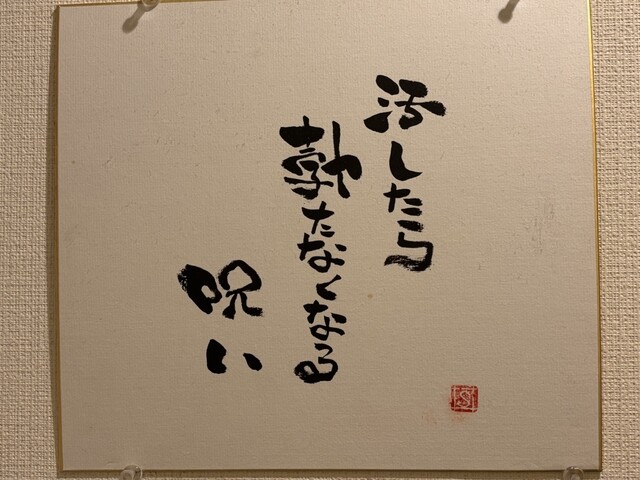 汚したら
勃たなくなる
呪い